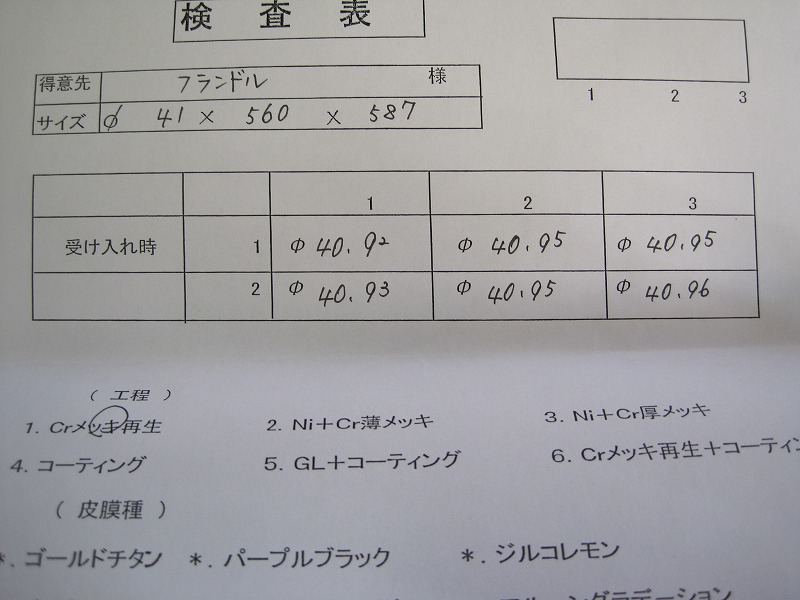 検 査 表
得意先 フランドル 様
サイズ φ 41 × 560 × 587
1 2 3
1 2 3
受け入れ時 1 Φ 40.92 Φ 40.95 Φ 40.95
2 Φ 40.93 Φ 40.95 Φ 40.96
( 工程 )
1. Crメッキ再生 2. Ni+Cr薄メッキ 3. Ni+Cr厚メッキ
4. コーティング 5. GL+コーティング 6. Crメッキ再生+コーティン
( 皮膜種 )
*. ゴールドチタン *. パープルブラック *. ジルコレモン